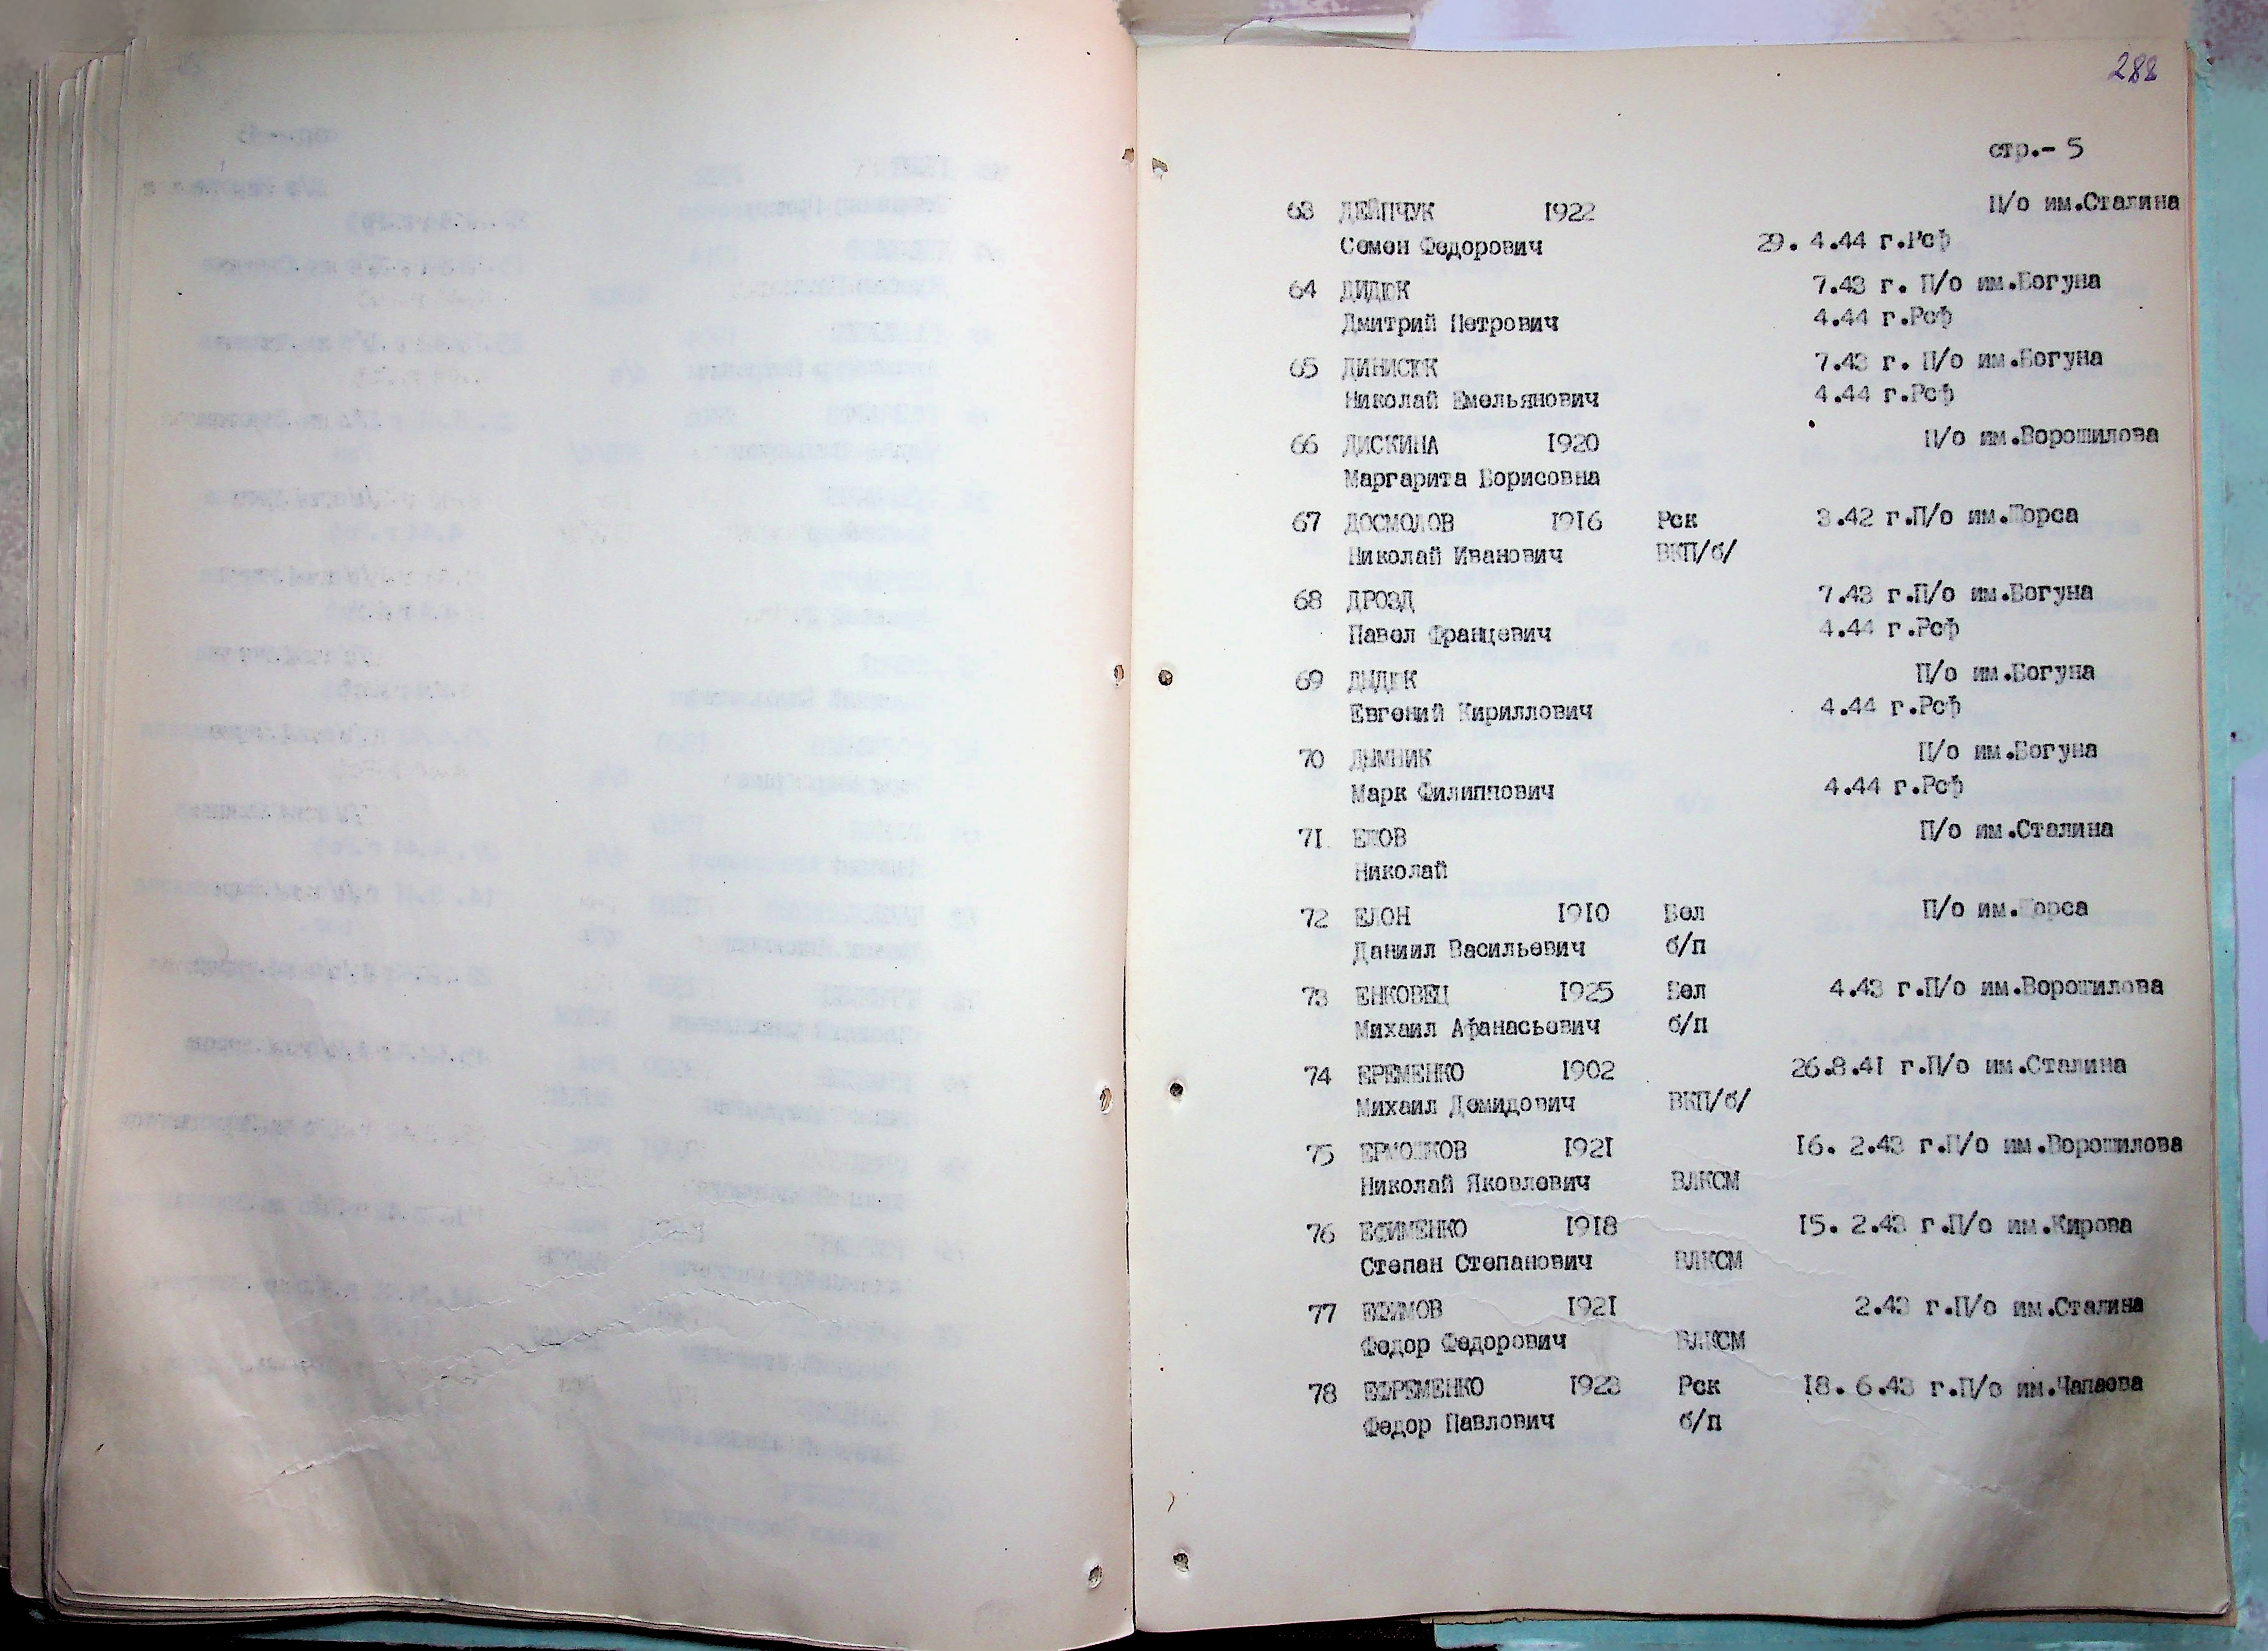 288
стр.- 5
63 ДЕЙПЧУК 1922 П/о им.Сталина
Семен Федорович 29. 4.44 г.Рсф
64 ДИДЮК 7.43 г. П/о им.Богуна
Дмитрий Петрович 4.44 г.Рсф
65 ДИНИСЮК 7.43 г. П/о им.Богуна
Николай Емельянович 4.44 г.Рсф
66 ДИСКИНА 1920 П/о им.Ворошилова
Маргарита Борисовна
67 ДОСМОЛОВ 1916 Рск 3.42 г.П/о им.Щорса
Николай Иванович ВКП/б/
68 ДРОЗД 7.43 г.П/о им.Богуна
Павел Францевич 4.44 г.Рсф
69 ДЫДЮК П/о им.Богуна
Евгений Кириллович 4.44 г.Рсф
70 ДЫМНИК П/о им.Богуна
Марк Филиппович 4.44 г.Рсф
71 П/о им.Сталина
Николай
72 ЕЛОН 1910 Бел П/о им.Щорса
Даниил Васильевич б/п
73 ЕНКОВЕЦ 1925 Бел 4.43 г.П/о им.Ворошилова
Михаил Афанасьевич б/п
74 ЕРЕМЕНКО 1902 26.8.41 г.П/о им.Сталина
Михаил Демидович ВКП/б/
75 ЕРМОШКОВ 1921 16. 2.43 г.П/о им.Ворошилова
Николай Яковлевич ВЛКСМ
76 ЕСИМЕНКО 1918 15. 2.43 г.П/о им.Кирова
Степан Степанович ВЛКСМ
77 ЕФИМОВ 1921 2.43 г.П/о им.Сталина
Федор Федорович ВЛКСМ
78 ЕФРЕМЕНКО 1923 Рск 18. 6.43 г.П/о им.Чапаева
Федор Павлович б/п